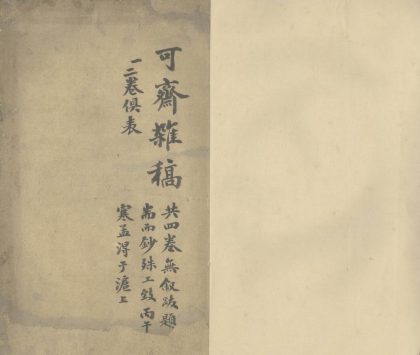 可齋雜稿
一二卷俱表
共四卷無叙跋題
耑而鈔殊工致丙午
寒孟得于滬上